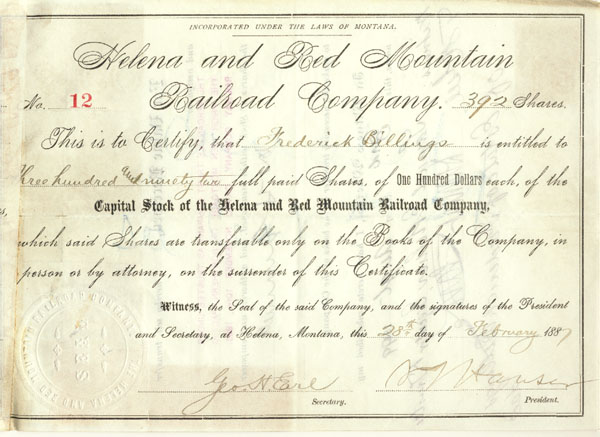 INCORPORATED UNDER THE LAWS OF MONTANA.
Helena and Red Mountain
No. 12 Railroad Company. 392 Shares.
This is to Certify, that Frederick Billings is entitled to
Three hundred and ninety two full paid Shares, of One Hundred Dollars each, of the
Capital Stock of the Helena and Red Mountain Railroad Company,
which said Shares are transferable only on the Books of the Company, in
person or by attorney, on the surrender of this Certificate.
Witness, the Seal of the said Company, and the signatures of the President
and Secretary, at Helena, Montana, this 28th day of February 1887
Geo. H. Earl
Secretary. President.
SEAL